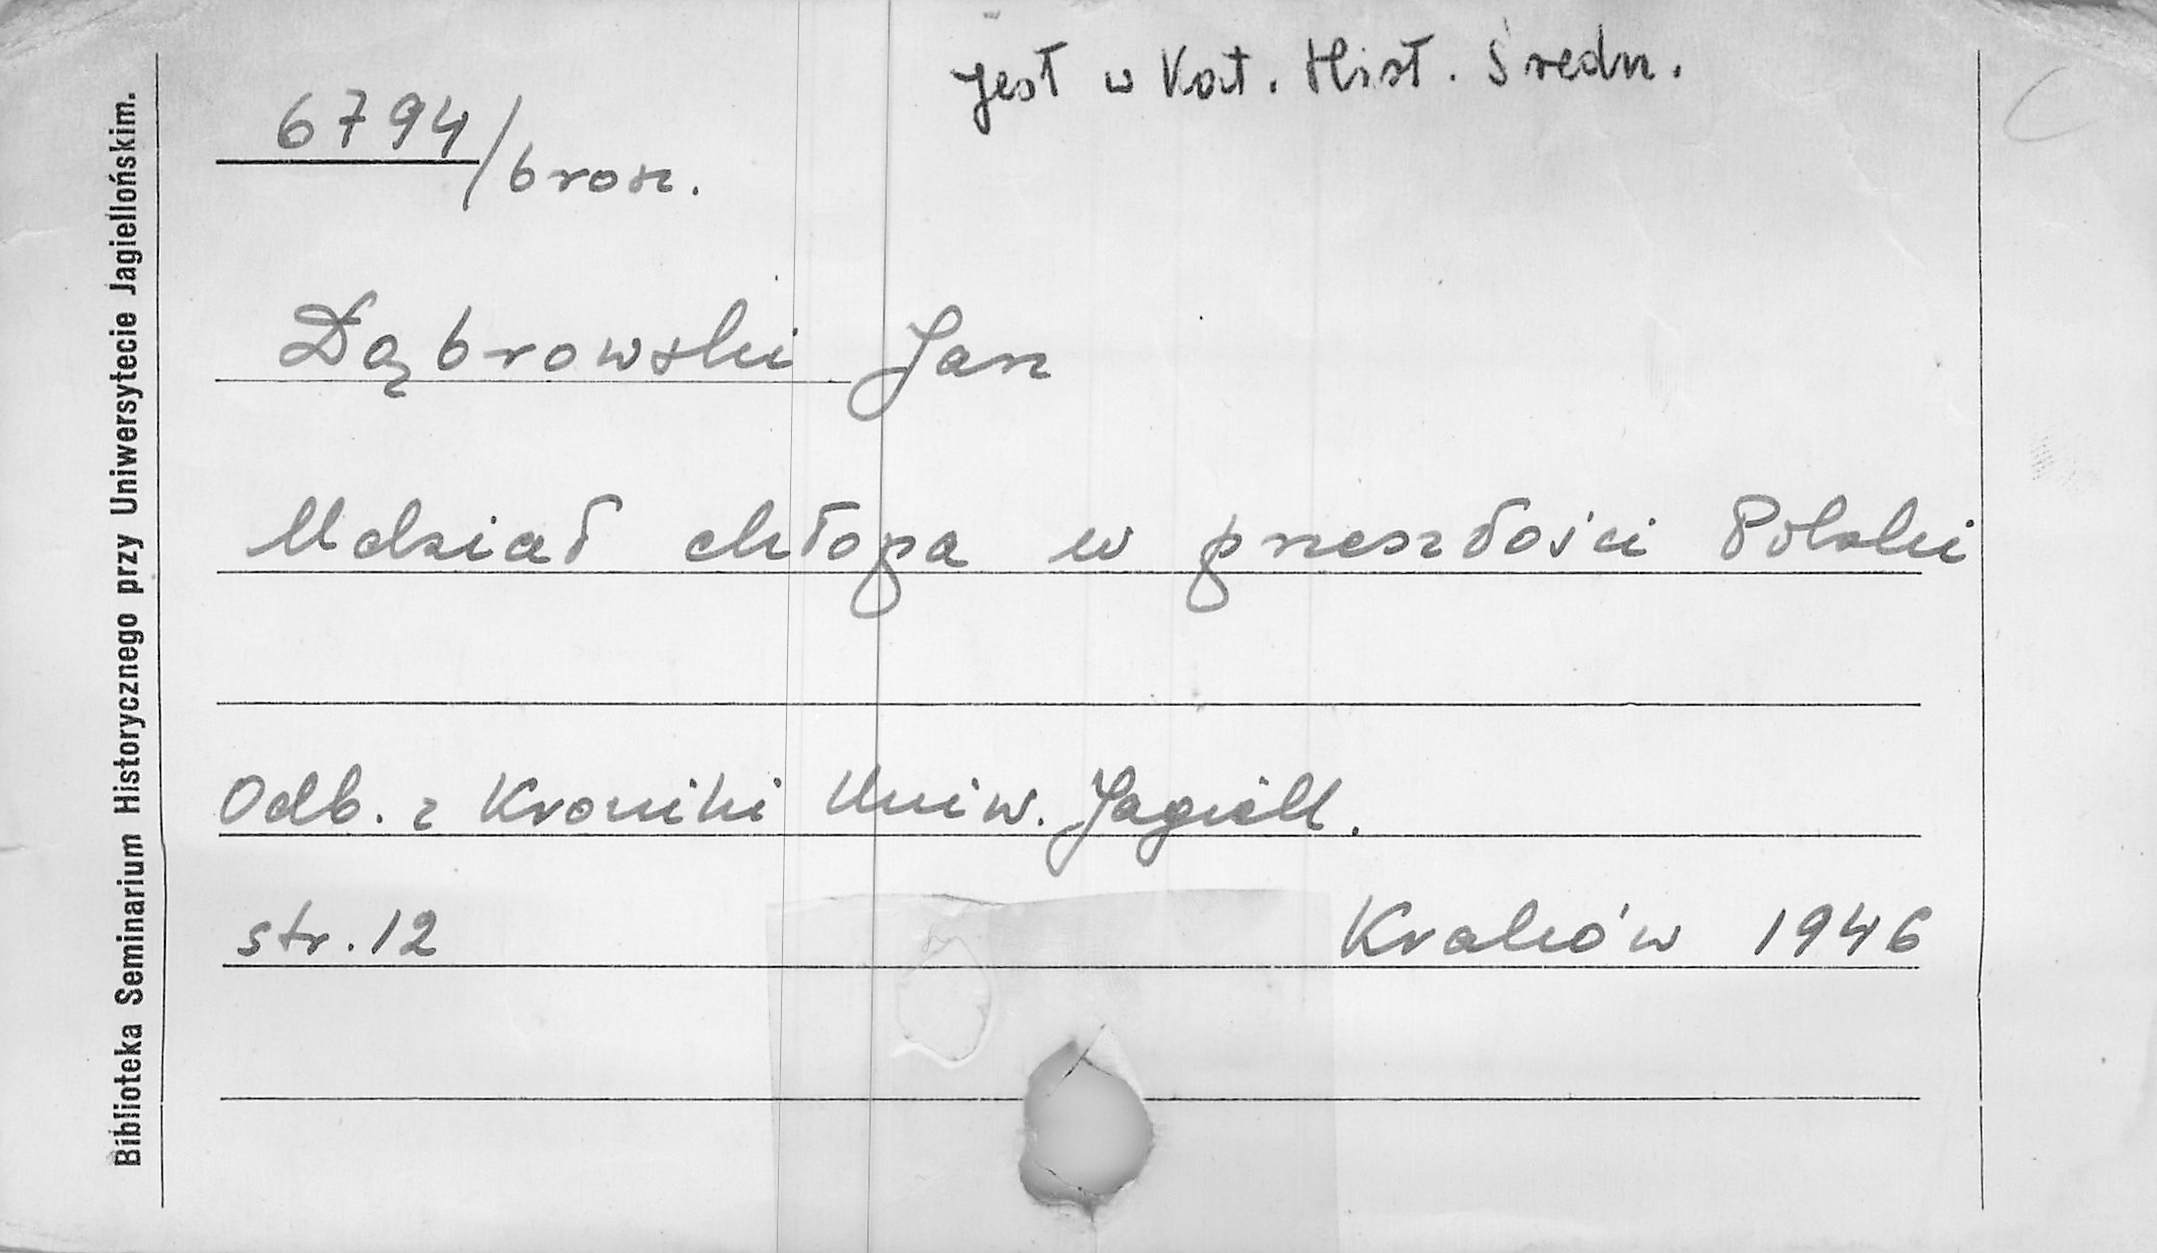 Jest w Kat. Hist. Średn.
6794/brosz.
Dąbrowski Jan
Udział chłopa w przeszłości Polski
Odb. z Kroniki Uniw. Jagiell.
str. 12 Kraków 1946
Biblioteka Seminarium Historycznego przy Uniwersytecie Jagiellońskim.